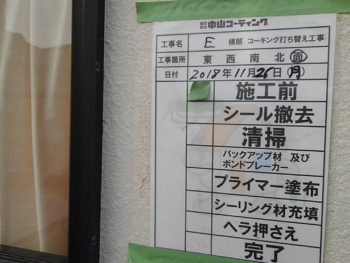 株式会社 中山コーティング
工事名 E 様邸 コーキング打ち替え工事
工事箇所 東 西 南 北 面
日付 2018年11月26日(月)
施工前
シール撤去
清掃
バックアップ材 及び
ボンドブレーカー
プライマー塗布
シーリング材充填
ヘラ押さえ
完了